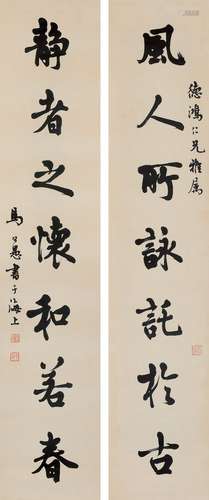 德鴻仁兄雅属
風人所詠託於古
静者之懷和若春
馬公愚書于海上